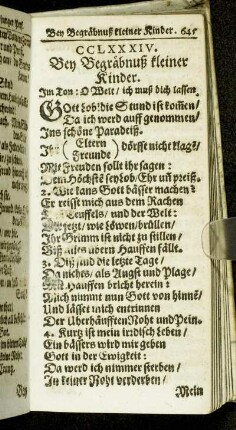 Bey Begräbnuß kleiner Kinder. 645
CCLXXXIV.
Bey Begräbnuß kleiner
Kinder.
Im Ton: O Welt / ich muß dich lassen
Gott lob! die Stund ist kommen /
Da ich werd auff genommen /
Ins schöne Paradeiß.
Ihr (Eltern / Freunde) dörfft nicht klagē /
Mit Freuden sollt ihr sagen:
Dem Höchstē sey Lob / Ehr uñ preiß.
2. Wie kans Gott bässer machen?
Er reisst mich aus dem Rachen
Teuffels / und der Welt:
jetzt / wie löwen / brüllen /
Ihr Grimm ist nicht zu stillen /
Biß alles übern Hauffen fällt.
3. Diß sind die letzte Tage /
Da nichts / als Angst und Plage /
Mit hauffen bricht herein:
Mich nimmt nun Gott von hinnē /
Und lässet mich entrinnen
Der überhäufften Noht und Pein.
4. Kurtz ist mein irdisch Leben /
Ein bässers wird mir geben
Gott in der Ewigkeit:
Da werd ich nimmer sterben /
In keiner Noht verderben /
Mein